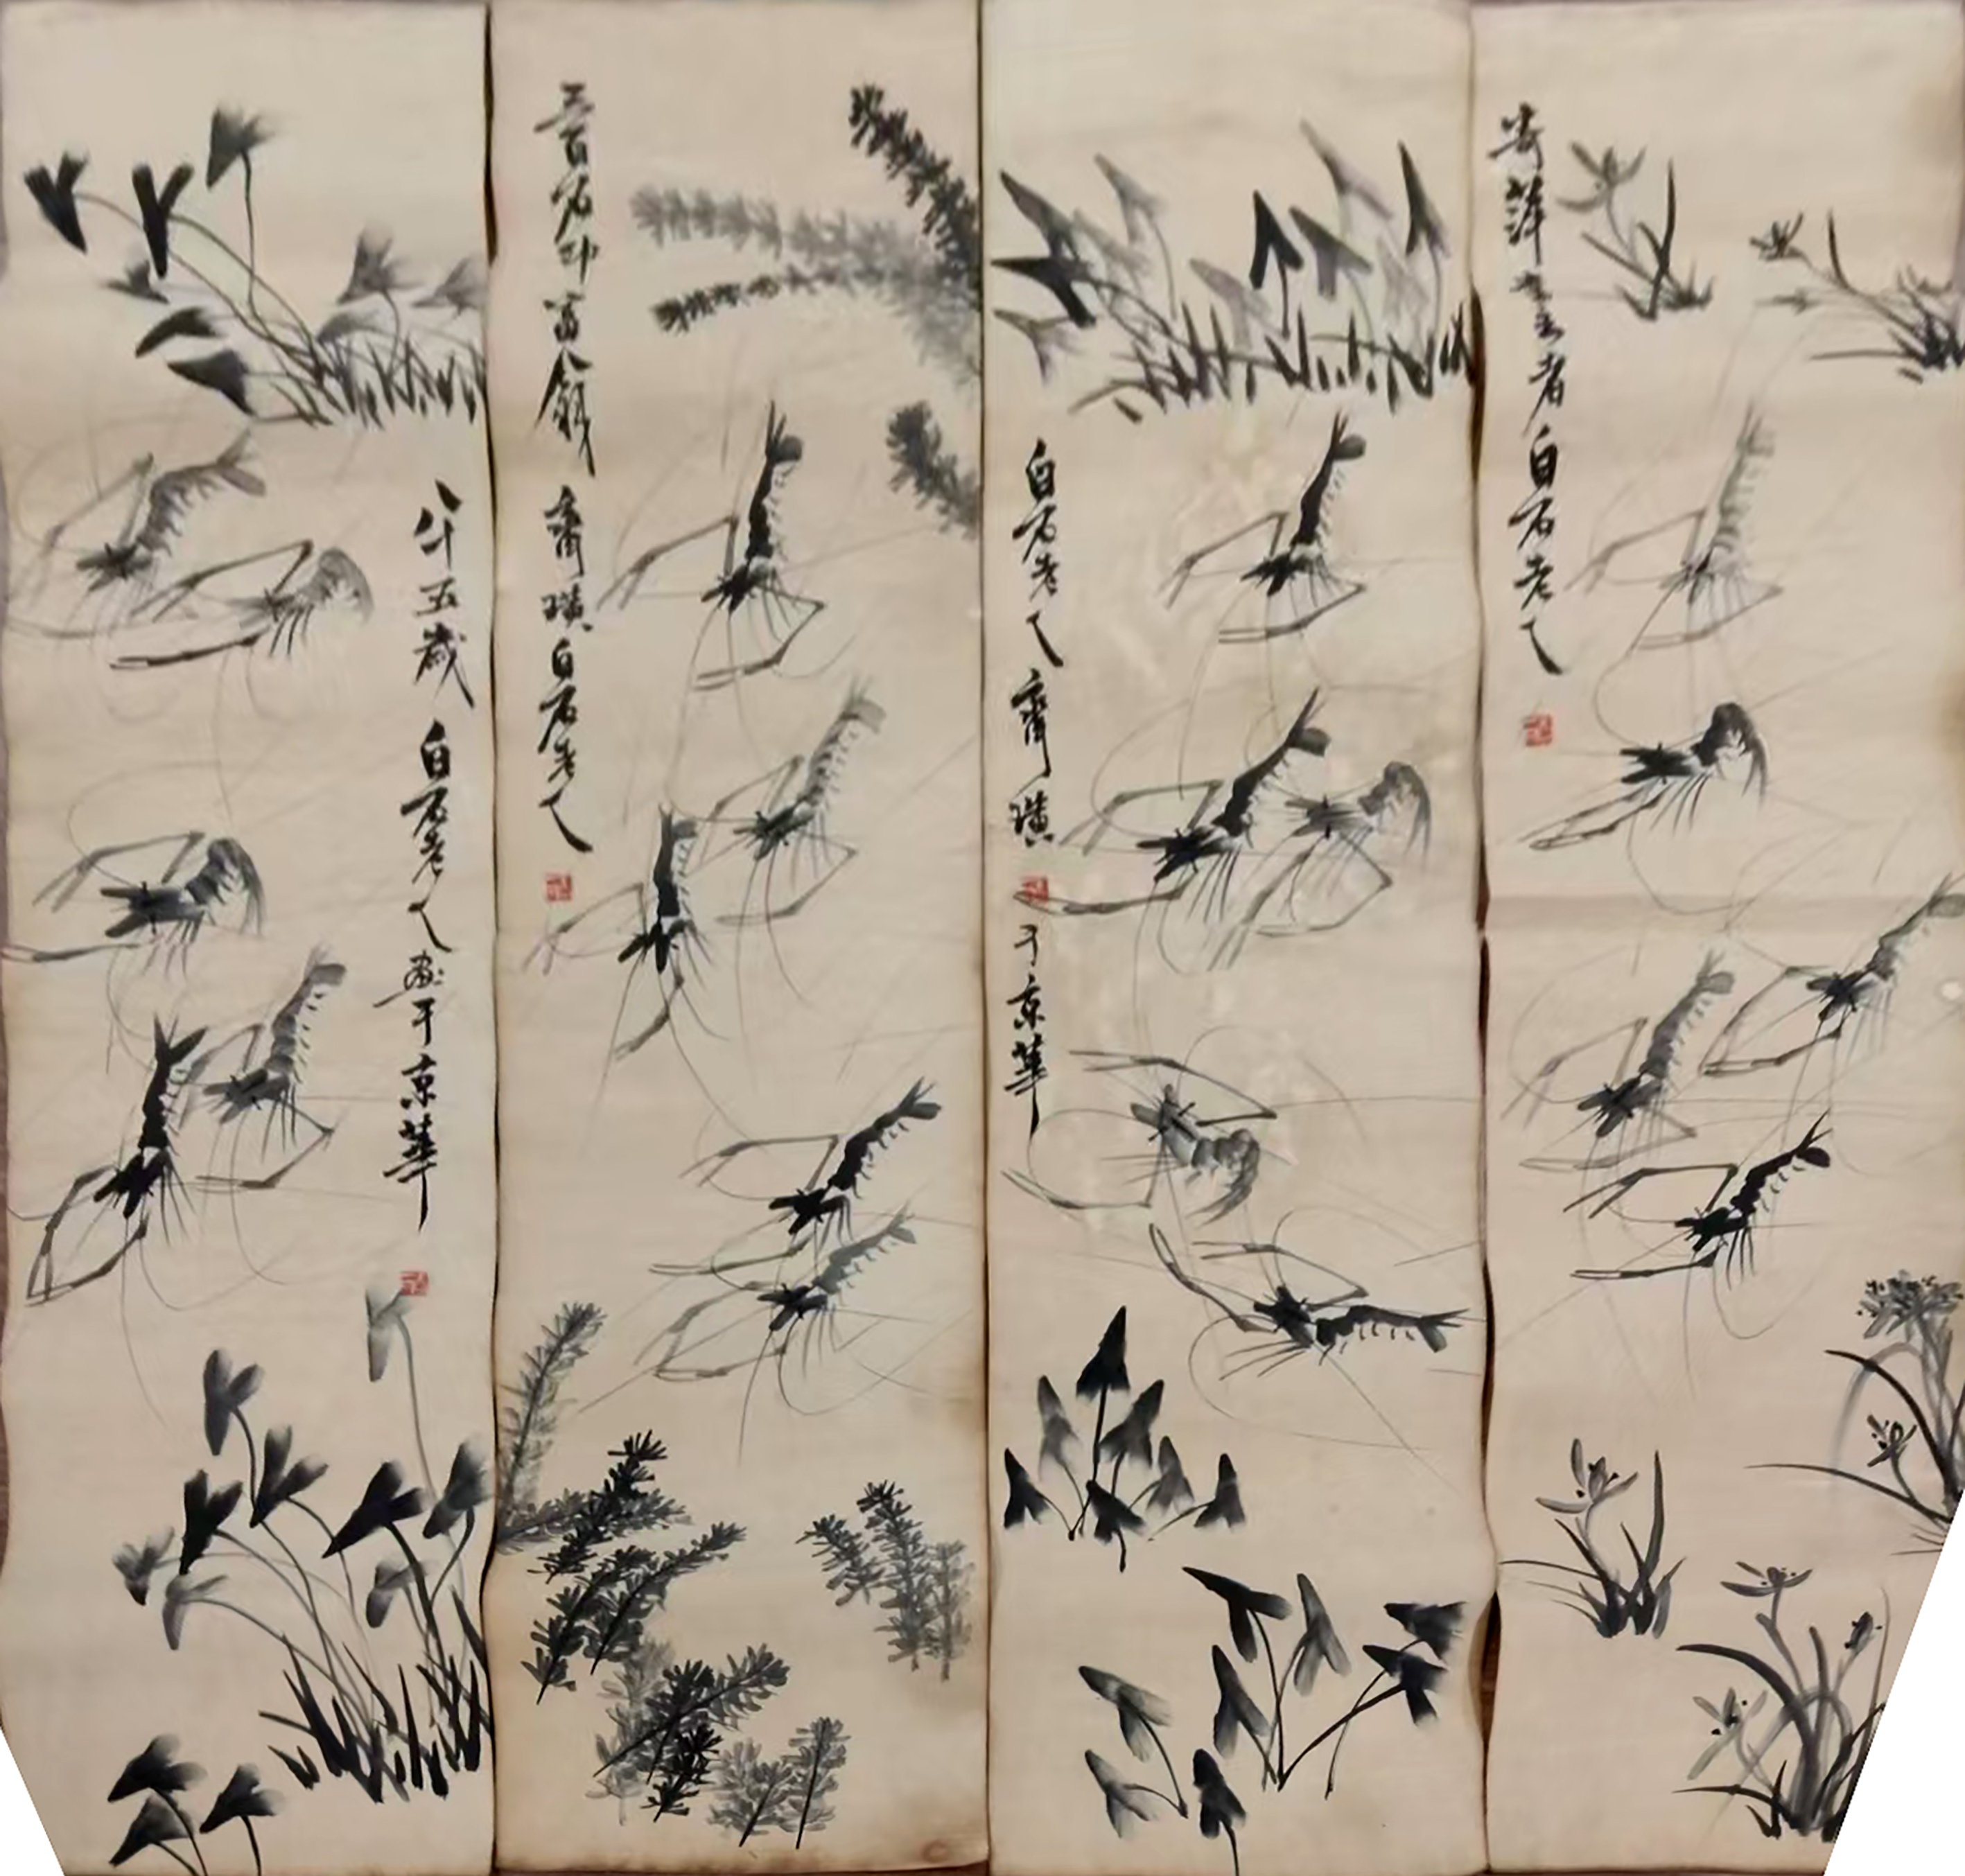 寄萍堂主者白石老人
白石老人齊璜
于京華
三百石印富翁齊璜白石老人
八十五歲白石老人畫于京華